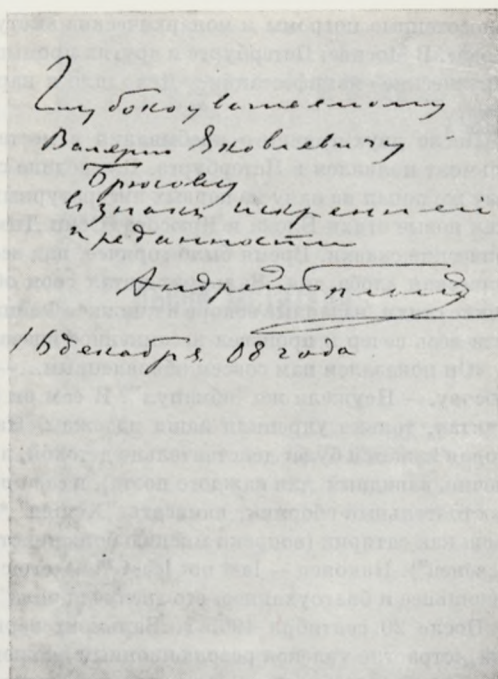 Глубокоуважаемому
Валер. Яковлевичу
Брюсову
в знак искренней
преданности
Андрей Белый
16 декабря 08 года